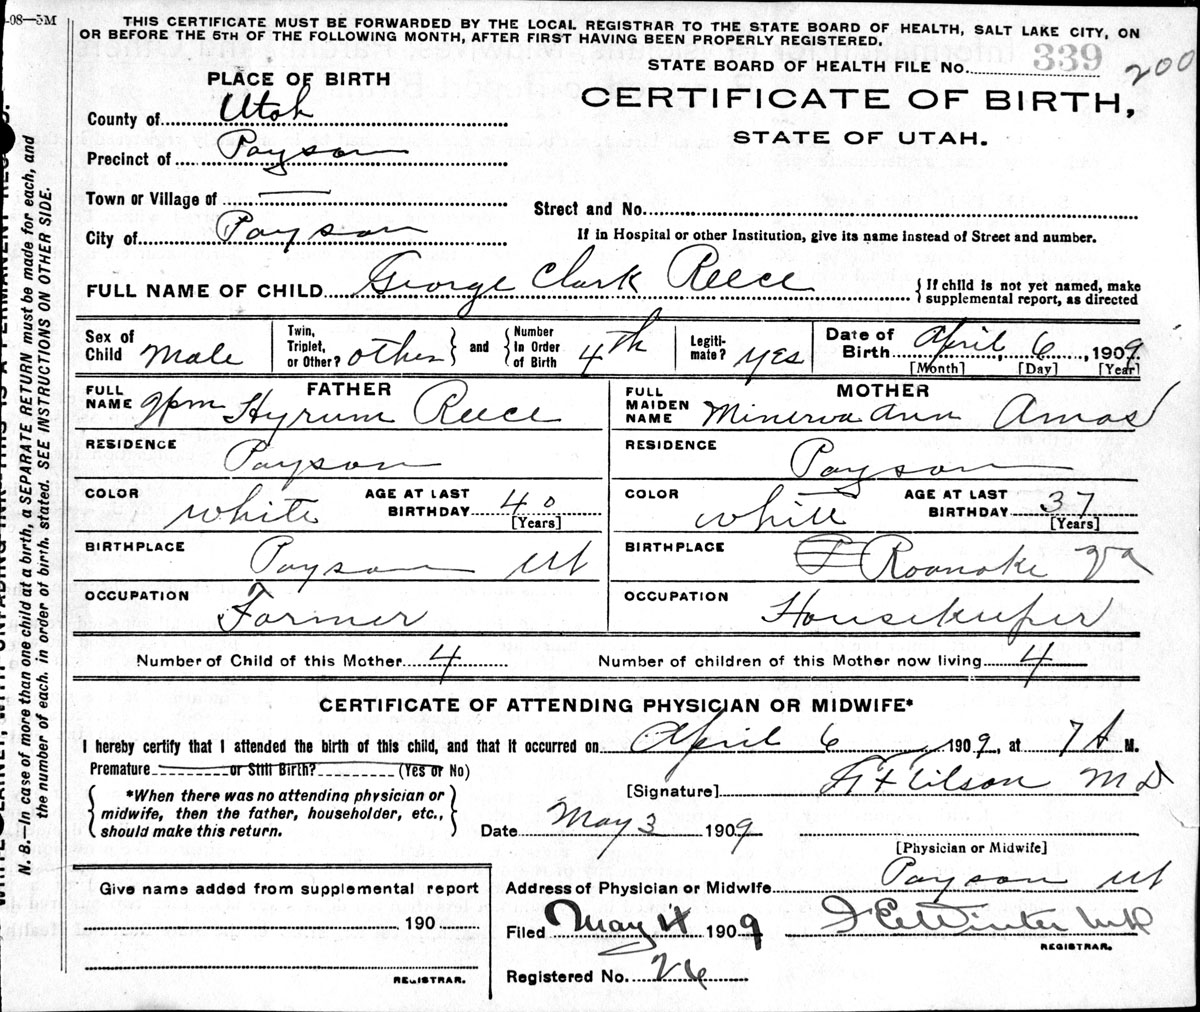 -08—5M
THIS CERTIFICATE MUST BE FORWARDED BY THE LOCAL REGISTRAR TO THE STATE BOARD OF HEALTH, SALT LAKE CITY, ON
OR BEFORE THE 5TH OF THE FOLLOWING MONTH, AFTER FIRST HAVING BEEN PROPERLY REGISTERED.
STATE BOARD OF HEALTH FILE No. 339 200
PLACE OF BIRTH
CERTIFICATE OF BIRTH,
STATE OF UTAH.
County of Utah
Precinct of Payson
Town or Village of —
Street and No.
City of Payson
If in Hospital or other Institution, give its name instead of Street and number.
FULL NAME OF CHILD George Clark Reece
{If child is not yet named, make
supplemental report, as directed
Sex of Child Male
Twin, Triplet, or Other? other } and { Number In Order of Birth 4th
Legiti-mate? yes
Date of Birth April, 6, 1909.
[Month] [Day] [Year]
FATHER
FULL NAME Wm Hyrum Reece
MOTHER
FULL MAIDEN NAME Minerva Ann Amos
RESIDENCE Payson
RESIDENCE Payson
COLOR white AGE AT LAST BIRTHDAY 40 [Years]
COLOR white AGE AT LAST BIRTHDAY 37 [Years]
BIRTHPLACE Payson Ut
BIRTHPLACE Roanoke Va
OCCUPATION Farmer
OCCUPATION Housekeeper
Number of Child of this Mother 4 Number of children of this Mother now living 4
CERTIFICATE OF ATTENDING PHYSICIAN OR MIDWIFE*
I hereby certify that I attended the birth of this child, and that it occurred on April 6, 1909, at 7 A M.
Premature or Still Birth? (Yes or No)
[Signature] M D
{ *When there was no attending physician or
midwife, then the father, householder, etc.,
should make this return. }
Date May 3 1909
[Physician or Midwife]
Give name added from supplemental report
190
REGISTRAR.
Address of Physician or Midwife Payson Ut
Filed May 4 1909
REGISTRAR.
Registered No. 26
N. B.—In case of more than one child at a birth, a SEPARATE RETURN must be made for each, and
the number of each, in order of birth, stated. SEE INSTRUCTIONS ON OTHER SIDE.